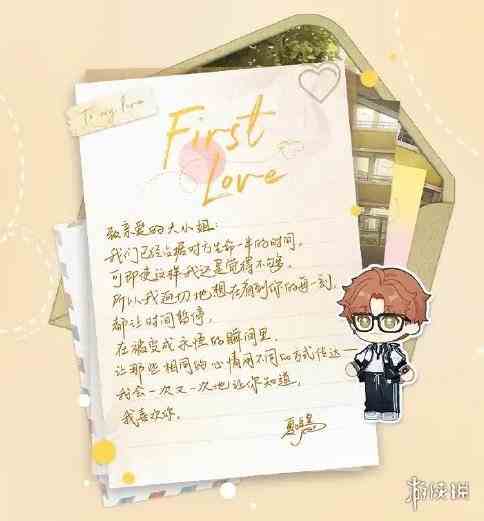 To my love
First
Love
致亲爱的大小姐:
我们已经占据对方生命一半的时间,
可即使这样我还是觉得不够,
所以我迫切地想在看到你的每一刻,
都让时间暂停,
在被变成永恒的瞬间里,
让那些相同的心情用不同的方式传达——
我会一次又一次地让你知道,
我喜欢你。
夏鸣星
游侠网